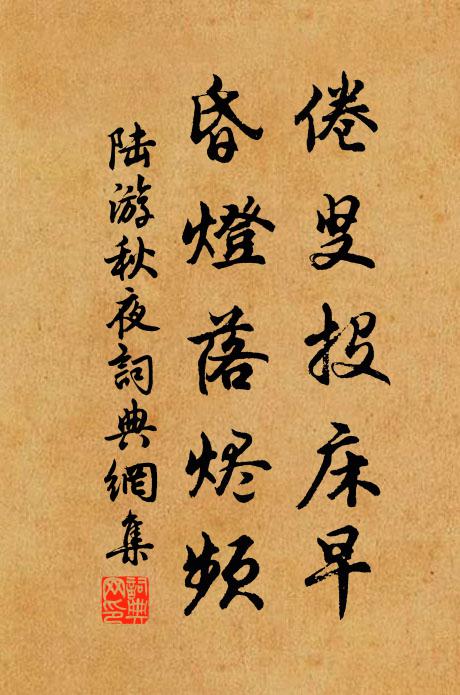 倦叟投床早
昏燈落烬頻
陸游秋夜詞典網集
詞典
网印